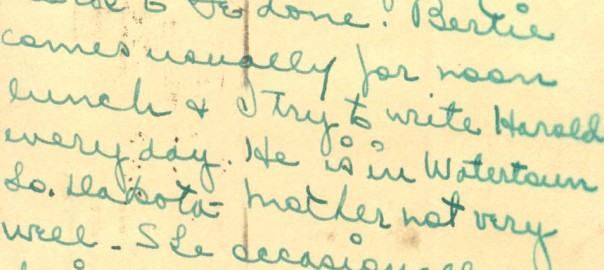 to be done. Bertie
comes usually for noon
lunch & I try to write Harold
every day. He is in Watertown
So. Dakota. Mother not very
well - She occasionally